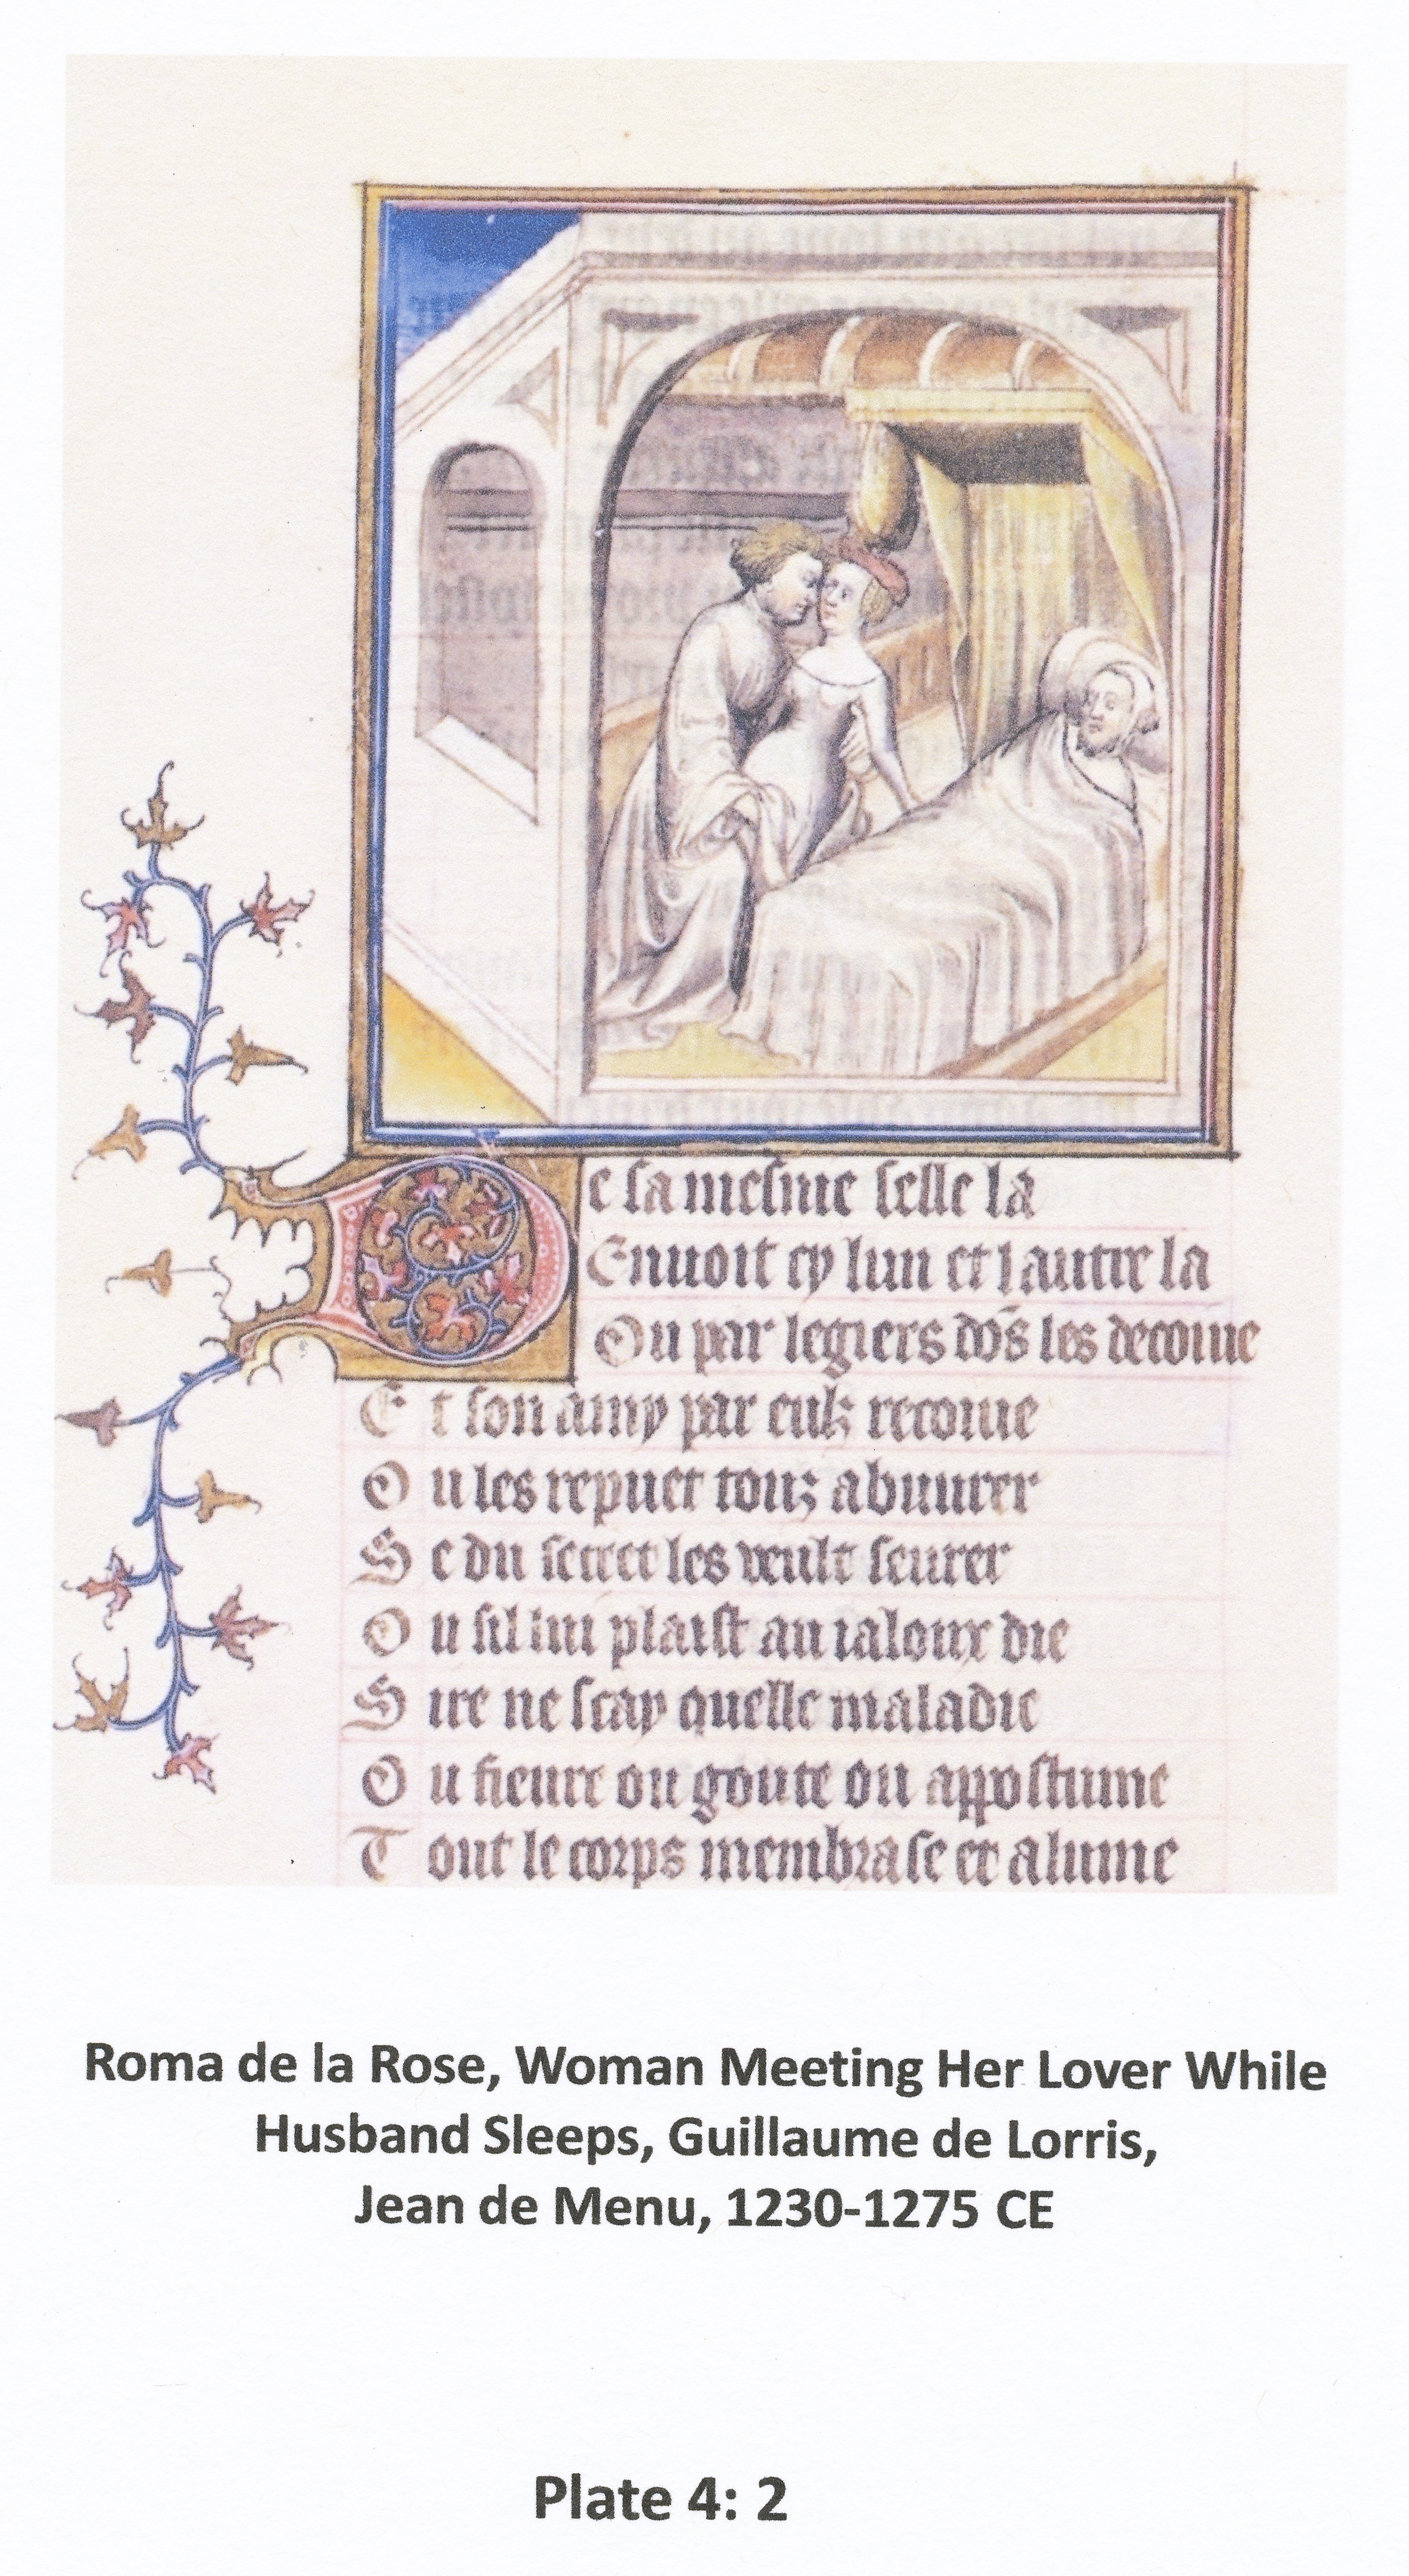 De sa mesme selle la
Enuoit cy lun et lautre la
Ou par legiers dōs les decoiue
Et son amy par eulz recoiue
Ou les repuet touz abuurer
Se du secret les veult seurer
Ou sil lui plaist au ialoux die
Sire ne scay quelle maladie
Ou fieure ou goute ou appostume
Tout le corps membrase et alume
Roma de la Rose, Woman Meeting Her Lover While
Husband Sleeps, Guillaume de Lorris,
Jean de Menu, 1230-1275 CE
Plate 4: 2